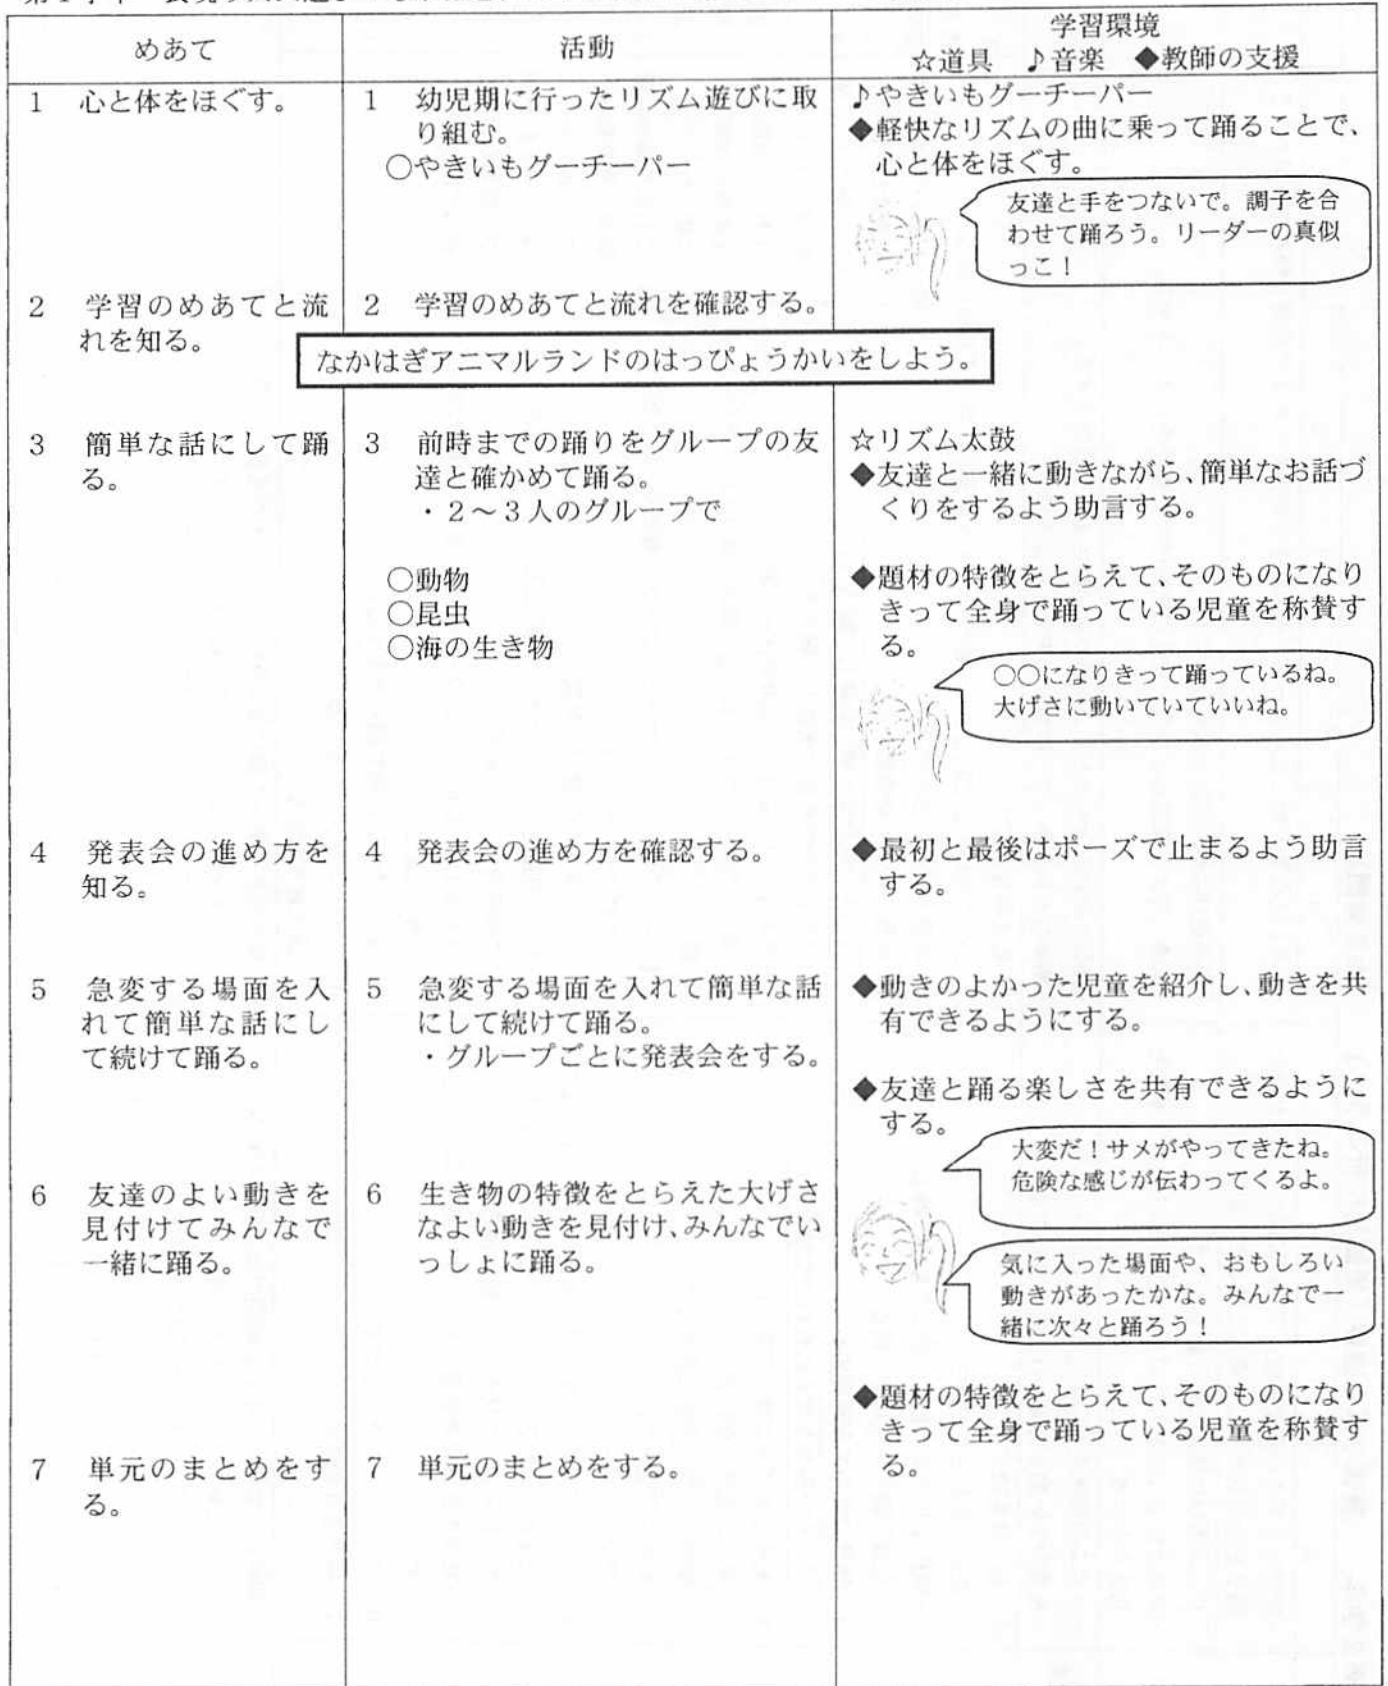 めあて
活動
学習環境
☆道具　♪音楽　◆教師の支援
1　心と体をほぐす。
1　幼児期に行ったリズム遊びに取
り組む。
○やきいもグーチーパー
♪やきいもグーチーパー
◆軽快なリズムの曲に乗って踊ることで、
心と体をほぐす。
友達と手をつないで。調子を合
わせて踊ろう。リーダーの真似
っこ！
2　学習のめあてと流
れを知る。
2　学習のめあてと流れを確認する。
なかはぎアニマルランドのはっぴょうかいをしよう。
3　簡単な話にして踊
る。
3　前時までの踊りをグループの友
達と確かめて踊る。
・2～3人のグループで
○動物
○昆虫
○海の生き物
☆リズム太鼓
◆友達と一緒に動きながら、簡単なお話づ
くりをするよう助言する。
◆題材の特徴をとらえて、そのものになり
きって全身で踊っている児童を称賛す
る。
○○になりきって踊っているね。
大げさに動いていていいね。
4　発表会の進め方を
知る。
4　発表会の進め方を確認する。
◆最初と最後はポーズで止まるよう助言
する。
5　急変する場面を入
れて簡単な話にし
て続けて踊る。
5　急変する場面を入れて簡単な話
にして続けて踊る。
・グループごとに発表会をする。
◆動きのよかった児童を紹介し、動きを共
有できるようにする。
◆友達と踊る楽しさを共有できるように
する。
大変だ！サメがやってきたね。
危険な感じが伝わってくるよ。
6　友達のよい動きを
見付けてみんなで
一緒に踊る。
6　生き物の特徴をとらえた大げさ
なよい動きを見付け、みんなでい
っしょに踊る。
気に入った場面や、おもしろい
動きがあったかな。みんなで一
緒に次々と踊ろう！
◆題材の特徴をとらえて、そのものになり
きって全身で踊っている児童を称賛す
る。
7　単元のまとめをす
る。
7　単元のまとめをする。